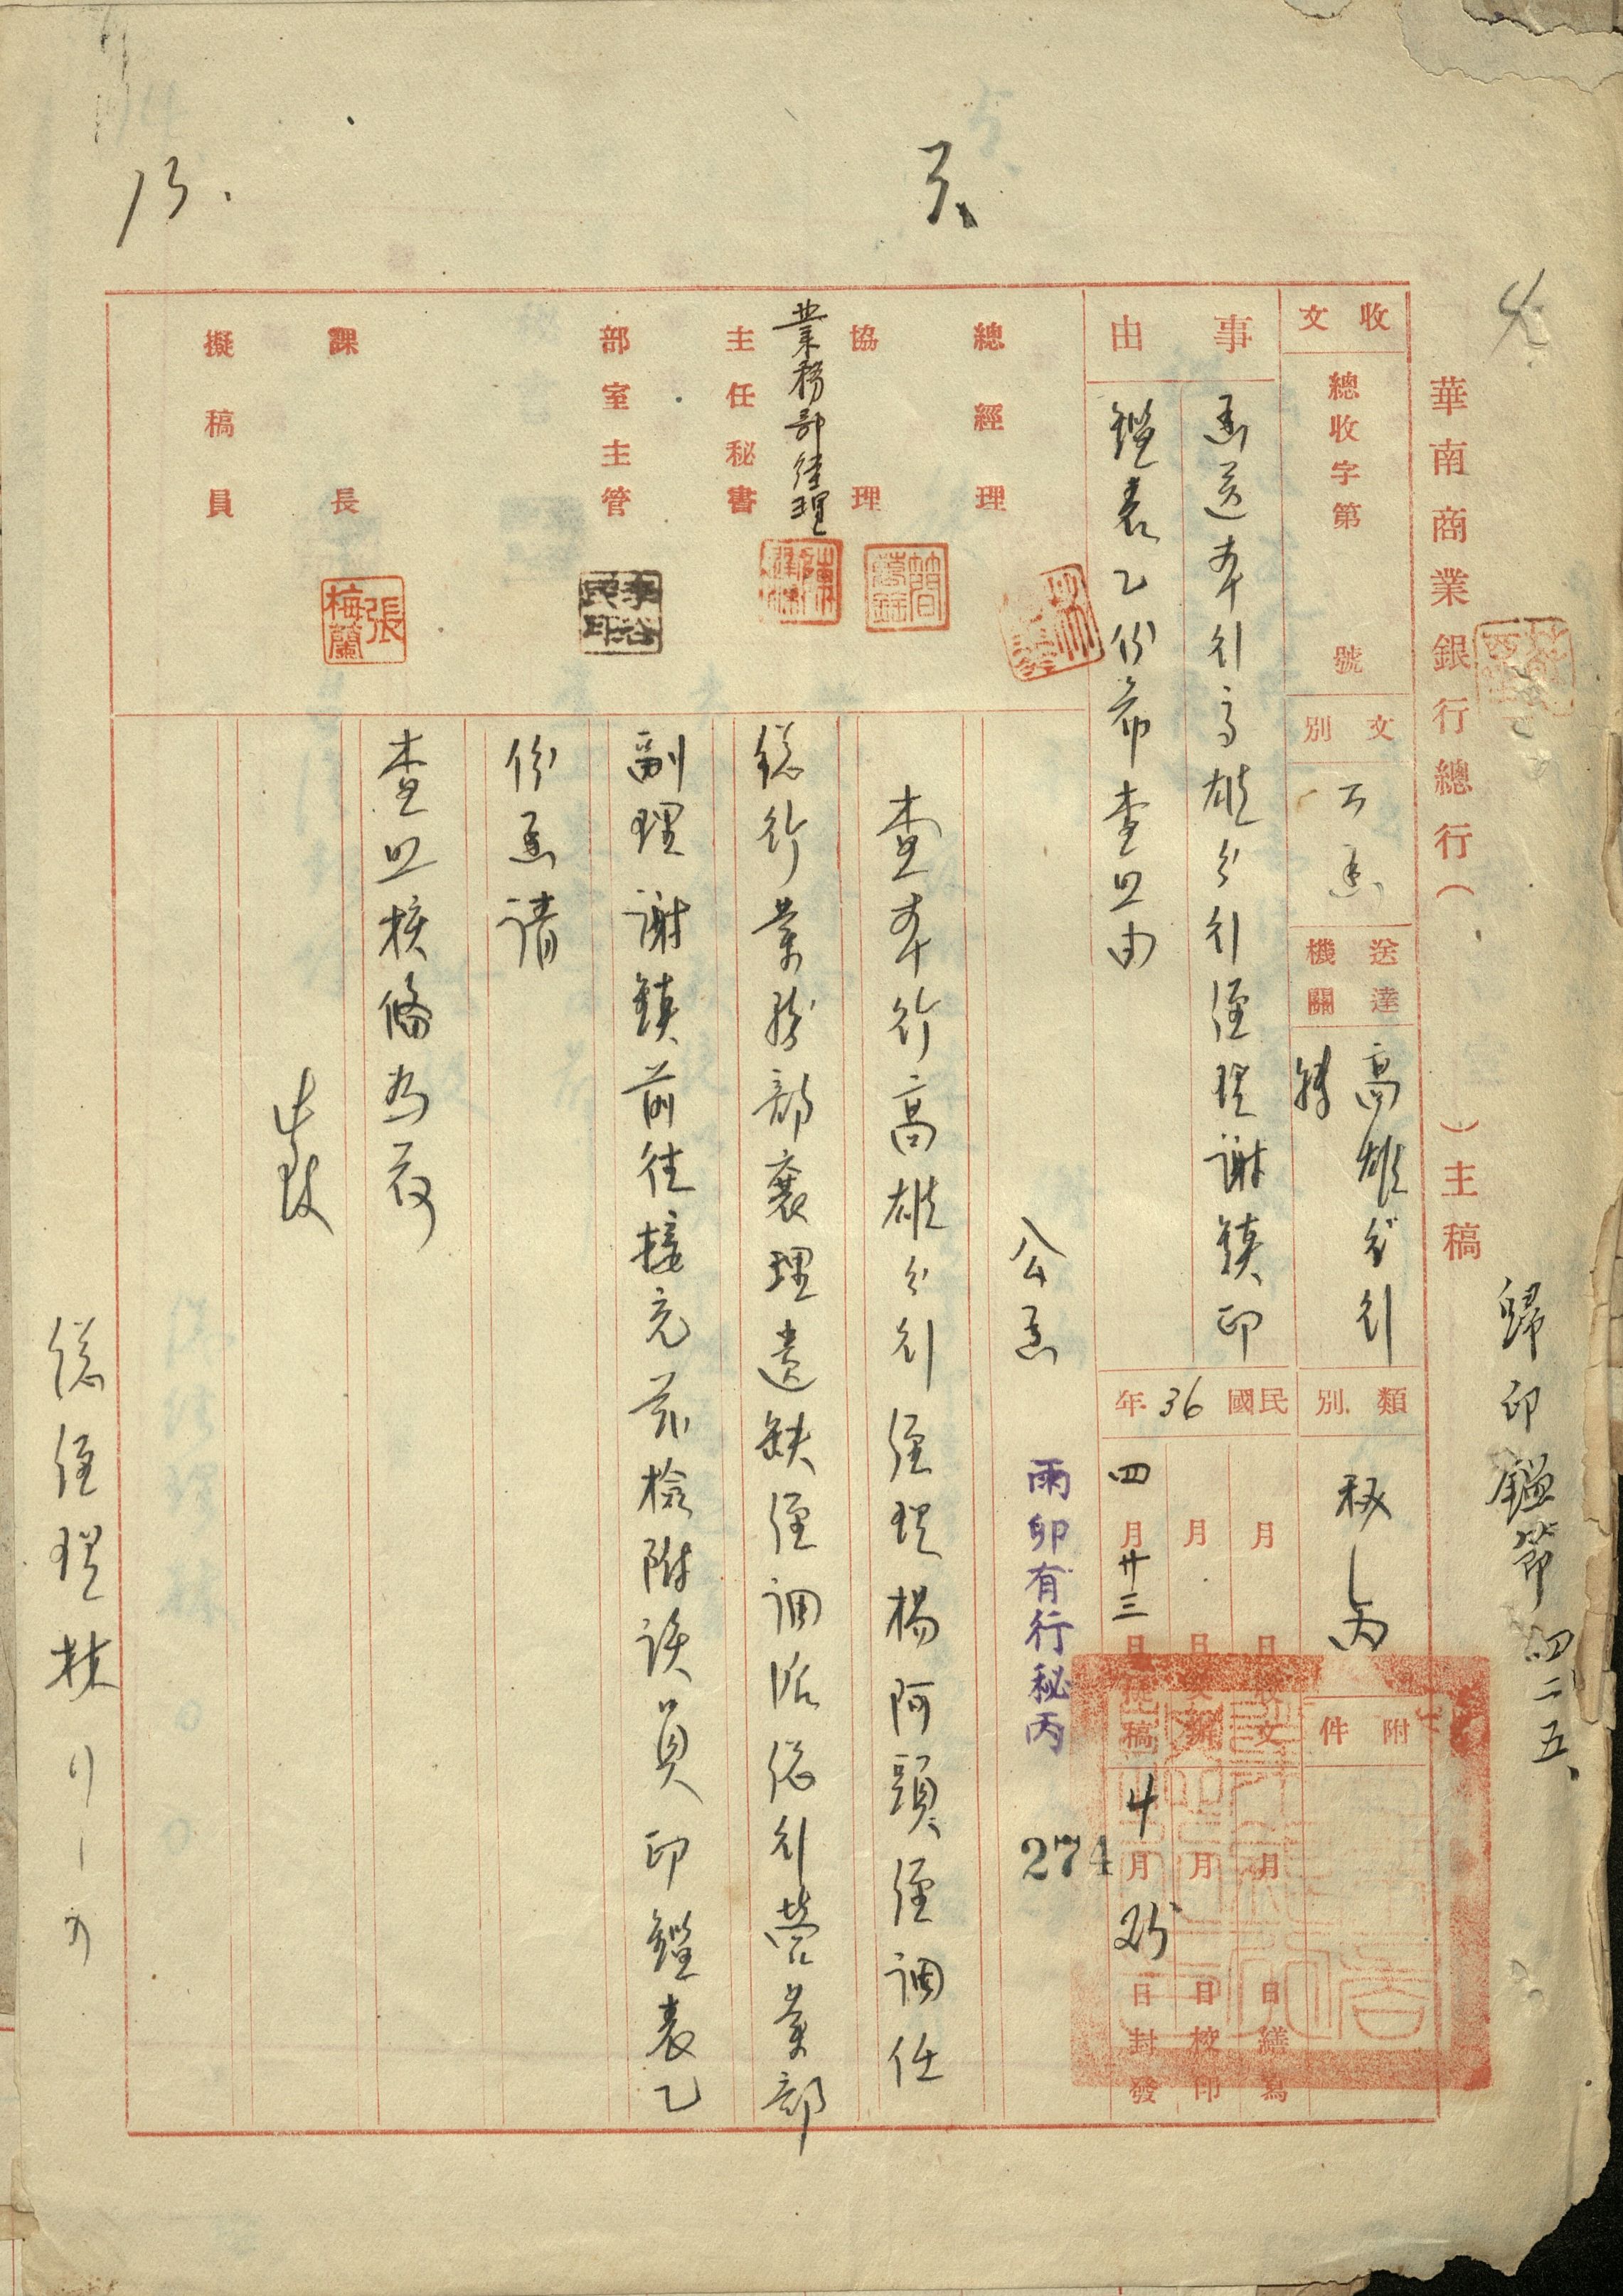 華南商業銀行總行（　　）主稿
歸印鑑節 四、二五、
收文
總收字第　　號
文別
公函
送達機關
高雄分行
類別
秘
丙
附件
事由
函送本行高雄分行經理謝鎮印
鑑表乙份希查照由
民國36年
月　日收文
月　日交辦
四月廿三日
稿
月　日繕寫
月　日校印
4月25日封發
總經理
協理
業務部經理
主任秘書
部室主管
課長
張梅蘭
擬稿員
公函
雨卯有行秘丙
274
查本行高雄分行經理楊阿頭經調任
總行業務部襄理遺缺經調派總行營業部
副理謝鎮前往接充茲檢附該員印鑑表乙
份函請
查照核備為荷
此致
總經理林
13.